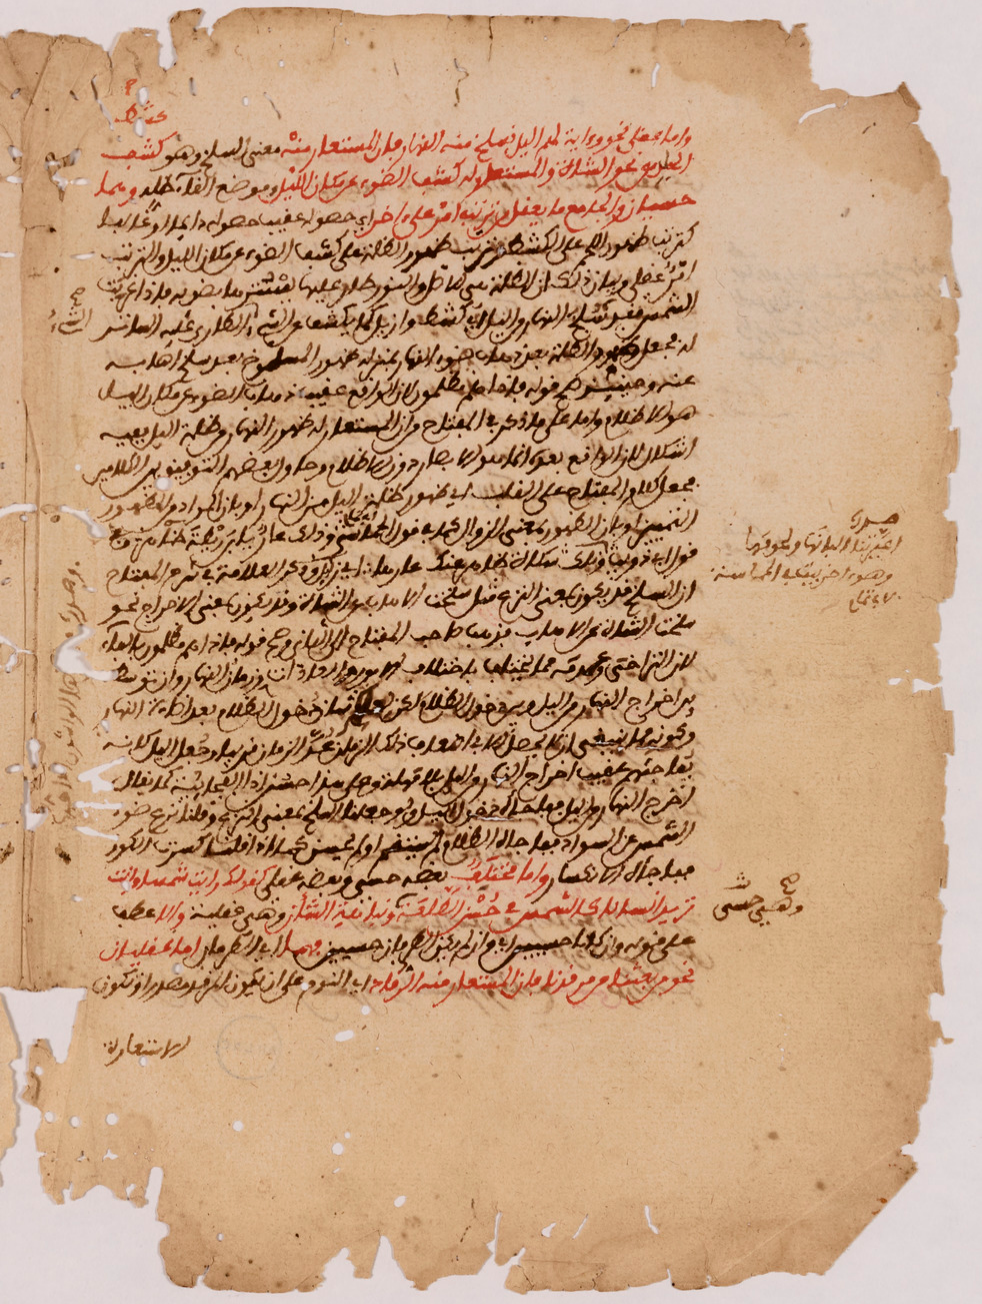 كشط
واما عقلي نحو وءاية لهم اليل نسلخ منه النهار فان المستعار منه معنى السلخ وهو كشف
الجلد عن نحو الشاة والمستعار له كشف الضوء عن مكان الليل وموضع القاء ظله وهما
حسيان والجامع ما يعقل من ترتب امر على ءاخر اي حصوله عقيب حصوله دايما او غالبا
كترتب ظهور اللحم على الكشط وترتب ظهور الظلمة على كشف الضوء عن مكان الليل والترتيب
امر عقلي وبيان ذلك ان الظلمة هي الاصل والنور طار عليها يسترها بضوءه فاذا غربت
الشمس فقد سلخ النهار من اليل اي كشط وازيل كما يكشف عن الشيء الطاري عليه الساتر
له فجعل ظهور الظلمة بعد ذهاب ضوء النهار بمنزلة ظهور المسلوخ بعد سلخ اهابه
عنه وحينئذ صح قوله فاذا هم مظلمون لان الواقع عقيب ذهاب الضوء عن مكان اليل
هو الاظلام واما على ما ذكر في المفتاح من ان المستعار له ظهور النهار من ظلمة اليل ففيه
اشكال لان الواقع بعده انما هو الابصار دون الاظلام وحاول بعضهم التوفيق بين الكلامين
بحمل كلام المفتاح على القلب اي ظهور ظلمة اليل من النهار او بان المراد من الظهور
التمييز او بان الظهور بمعنى الزوال كما في قول الحماسي وذلك عار يا بن ريطة ظاهر وفي
قول ابي ذويب وتلك شكاة ظاهر عنك عارها اي زايل وذكر العلامة في شرح المفتاح
ان السلخ قد يكون بمعنى النزع مثل سلخت الاهاب عن الشاة وقد يكون بمعنى الاخراج نحو
سلخت الشاة عن الاهاب فذهب صاحب المفتاح الى الثاني وصح قوله فاذا هم مظلمون بالفاء
لان التراخي وعدمه مما يختلف باختلاف الامور والعادات وزمان النهار وان توسط
بين اخراج النهار من اليل وبين دخول الظلام لكن لعظم شان دخول الظلام بعد اضاءة النهار
وكونه مما ينبغي ان لا يحصل الا في اضعاف ذلك الزمان عد الزمان قريبا وجعل اليل كانه
يفاجئهم عقيب اخراج النهار من اليل بلا مهلة وعلى هذا حسن اذا الفجائية كما يقال
اخرج النهار من اليل ففاجاه دخول الليل ولو جعلنا السلخ بمعنى النزع وقلنا نزع ضوء
الشمس عن الهواء ففاجاه الظلام لم يستقم او لم يحسن كما اذا قلنا كسرت الكوز
ففاجاه الانكسار واما مختلف بعضه حسي وبعضه عقلي كقولك رايت شمسا وانت
تريد انسانا كالشمس في حسن الطلعة ونباهة الشان وهي عقلية والا عطف
على قوله وان كانا حسيين اي وان لم يكن الطرفان حسيين فهما اي الطرفان اما عقليان
نحو من بعثنا من مرقدنا فان المستعار منه الرقاد اي النوم على ان يكون المرقد مصدرا او تكون
الاستعارة
صدره
اعيرتنا البانها ولحومها